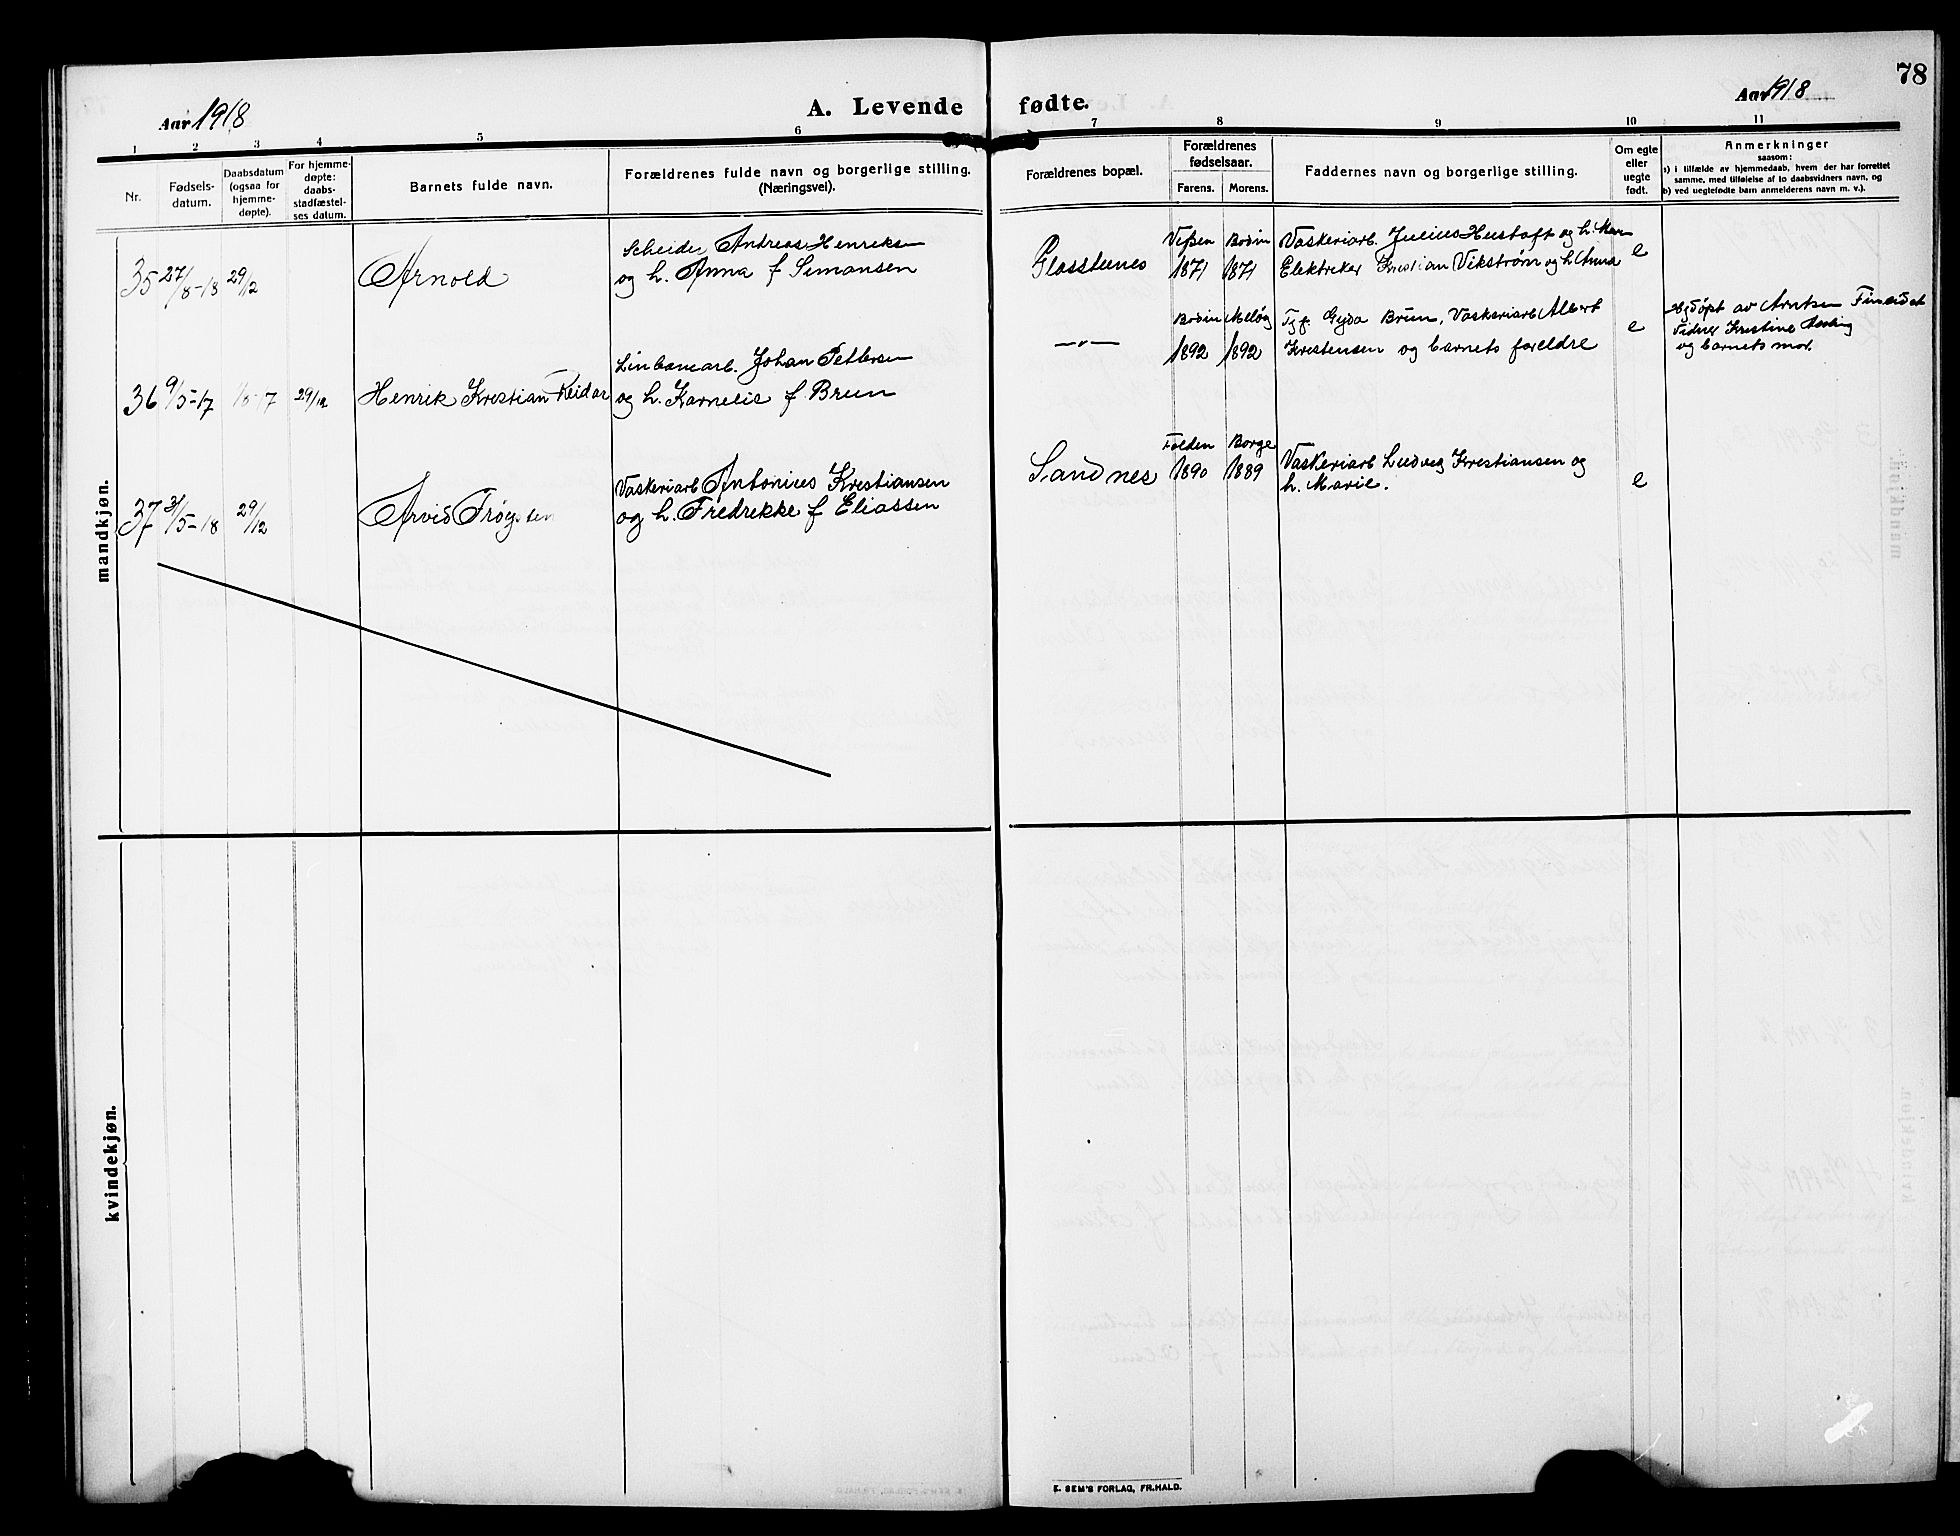 78
Aar 1918
A. Levende fødte.
Aar 1918
1 2 3 4 5 6 7 8 9 10 11
Nr.
Fødsels-
datum.
Daabsdatum
(ogsaa for
hjemme-
døpte).
For hjemme-
døpte:
daabs-
stadfæstel-
ses datum.
Barnets fulde navn.
Forældrenes fulde navn og borgerlige stilling.
(Næringsvei).
Forældrenes bopæl.
Forældrenes
fødselsaar.
Farens. Morens.
Faddernes navn og borgerlige stilling.
Om egte
eller
uegte
født.
Anmerkninger
saasom:
a) i tilfælde av hjemmedaab, hvem der har forrettet
samme, med tilføielse af to daabsvidners navn, og
b) ved uegtefødte barn anmelderens navn m. v.).
mandkjøn.
35 27/8-18 29/12 Arnold
Scheider Andreas Henriksen
og h. Anna f Simonsen
Glasstunes
Vefsen 1871
Bodin 1871
Vaskeriarb. Julius Hustoft og h.
Elektriker Kristian Vikstrøm og h Anna
e
36 9/5-17 29/12 Henrik Kristian Reidar
Linbanearb. Johan Pettersen
og h. Kornelis f Bruun
—"—
Bodin 1892
Meløy 1892
Tj.p. Gyda Bruun, Vaskeriarb Albert
Kristensen og barnets foreldre
e
Hjdøpt av Arntsen Finneidet
Vidner Kristine
og barnets mor.
37 31/5-18 29/12 Arvid Frøysten
Vaskeriarb Antonius Kristiansen
og h. Fredrikke f Eliassen
Sandnes
Folden 1890
Borge 1889
Vaskeriarb Ludvig Kristiansen og
h. Marie.
e
kvindekjøn.
E. SEM'S FORLAG, FR.HALD.